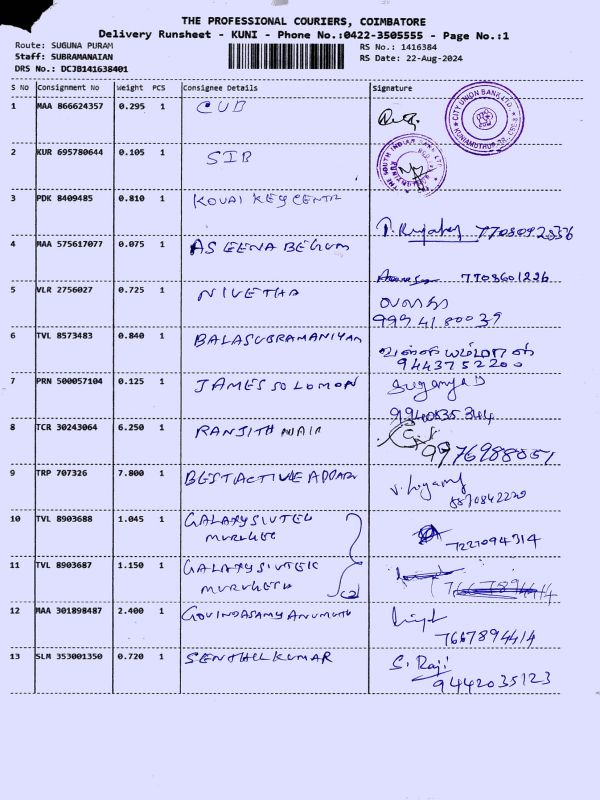 THE PROFESSIONAL COURIERS, COIMBATORE
Delivery Runsheet - KUNI - Phone No.:0422-3505555 - Page No.:1
Route: SUGUNA PURAM
RS No.: 1416384
Staff: SUBRAMANAIAN
RS Date: 22-Aug-2024
DRS No.: DCJB141638401
S No Consignment No Weight PCS Consignee Details Signature
1 MAA 866624357 0.295 1 CUB
CITY UNION BANK LTD.
2 KUR 695780644 0.105 1 SIB
THE SOUTH INDIAN BANK LTD
3 PDK 8409485 0.810 1 KOVAI KEY CENTR
7708092836
4 MAA 575617077 0.075 1 ASEENA BEGUM
7708601226
5 VLR 2756027 0.725 1 NIVETHA
9994180039
6 TVL 8573483 0.840 1 BALASUBRAMANIYAM
9443752200
7 PRN 500057104 0.125 1 JAMES SOLOMON Suganya D
9940835344
8 TCR 30243064 6.250 1 RANJITH NAIR
9976988851
9 TRP 707326 7.800 1 BEST ACTIVE
8870842220
10 TVL 8903688 1.045 1 GALAXY
7221094314
11 TVL 8903687 1.150 1 GALAXY
7667894414
12 MAA 301898487 2.400 1 GOVINDASAMY
7667894414
13 SLM 353001350 0.720 1 SENTHILKUMAR S. Raji
9442035123